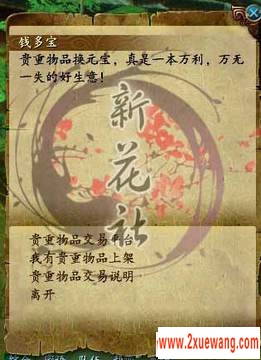 钱多宝
贵重物品换元宝，真是一本万利，万无
一失的好生意！
新花社
贵重物品交易平台
我有贵重物品上架
贵重物品交易说明
离开
www.2xuewang.com